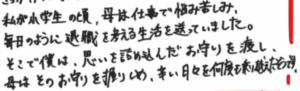 私が小学生の頃、母は仕事で悩み苦しみ、
毎日のように退職を考える生活を送っていました。
そこで僕は、思いを詰め込んだお守りを渡し、
母はそのお守りを握りしめ、辛い日々を何度も乗り越え